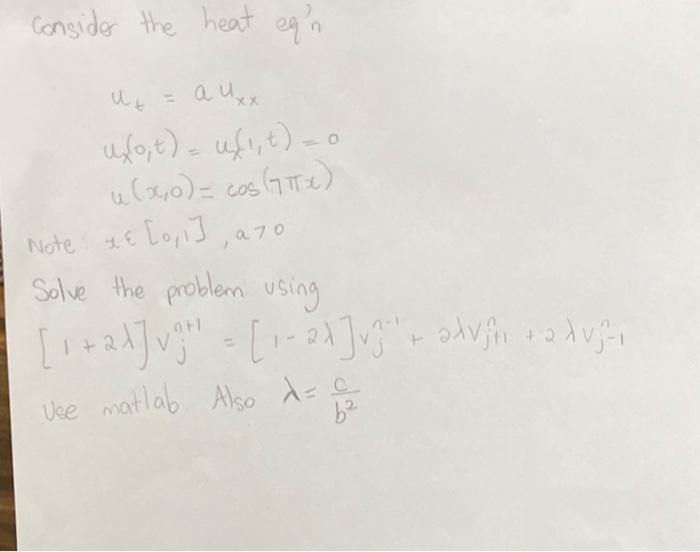 Consider the heat eq'n
u_t = a u_xx
u_x(0,t) = u_x(1,t) = 0
u(x,0) = cos(7πx)
Note: x ε [0,1], a > 0
Solve the problem using
[1+2λ] v_j^{n+1} = [1-2λ] v_j^{n-1} + 2λ v_{j+1}^n + 2λ v_{j-1}^n
Use matlab. Also λ = c/b²